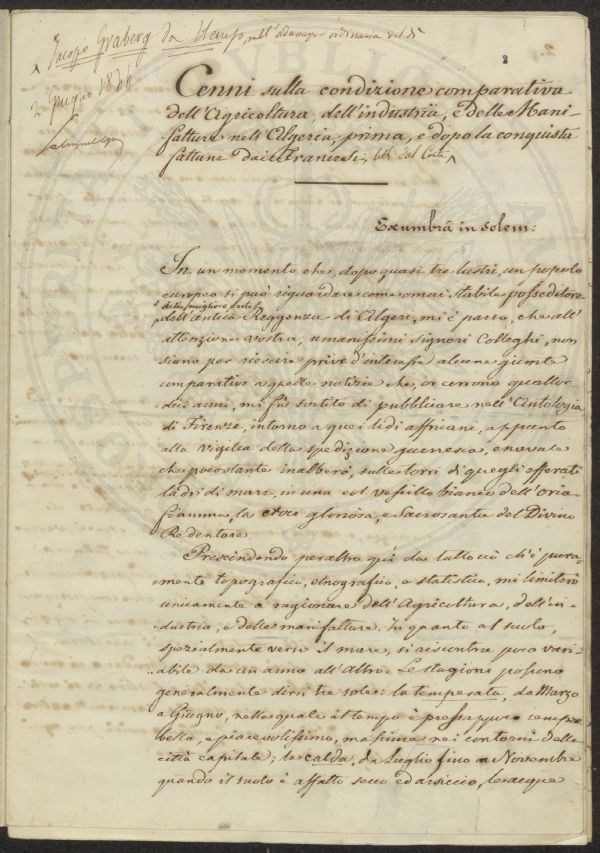 Jacopo Graberg da Hemsö, nell'adunanza ordinaria del dì
2 Giugno 1844
8
Cenni sulla condizione comparativa
dell'Agricoltura, dell'industria, e delle Mani-
fatture nell'Algeria, prima, e dopo la conquista
fattane dai Francesi, letti dal Conte
Ex umbrâ in Solem:
In un momento che, dopo quasi tre lustri, un popolo
europeo si può riguardare come omai stabile posseditore
della migliore parte
dell'antica Reggenza di Algeri, mi è parso, che all'
attenzione vostra, umanissimi signori Colleghi, non
siano per riescire prive d'interesse alcune giunte
comparative a quelle notizie che, or corrono quattor-
dici anni, mi fù sortito di pubblicare nell'Antologia
di Firenze, intorno a quei lidi affricani, appunto
alla vigilia della spedizione guerresca, e navale
che poco stante inalberò, sulle torri di quegli efferati
ladri di mare, in una col vessillo bianco dell'oria-
fiamma, la croce gloriosa, e Sacrosanta del Divino
Redentore.
Prescindendo peraltro quì da tutto ciò ch'è pura-
mente topografico, etnografico, e statistico, mi limiterò
unicamente a ragionare dell'Agricultura, dell'in-
dustria, e delle manifatture. In quanto al suolo,
spezialmente verso il mare, si riscontra poco vari-
abile da un anno all'altro. Le stagioni possono
generalmente dirsi tre sole: la temperata, da Marzo
a Giugno, nella quale il tempo è pressappoco sempre
bello, e piacevolissimo, massime nei contorni della
città capitale; la calda, da Luglio fino a Novembre
quando il suolo è affatto secco ed arsiccio, le acque